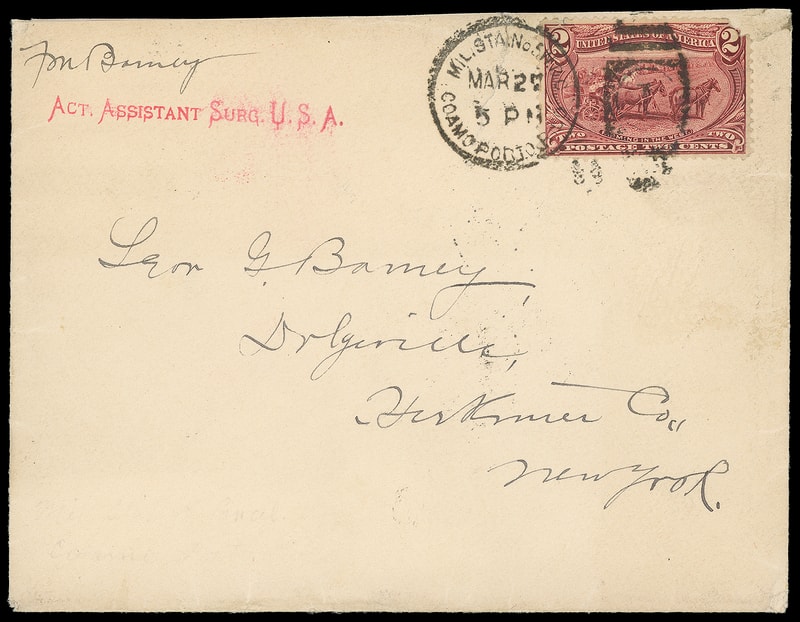 F M Barney
ACT. ASSISTANT SURG. U. S. A.
MIL. STA. No.
MAR 27
5 PM
COAMO PORTO
2 2
UNITED STATES OF AMERICA
FARMING IN THE WEST
TWO TWO
POSTAGE TWO CENTS
Leon G. Barney,
Dolgeville,
Herkimer Co.,
New York.